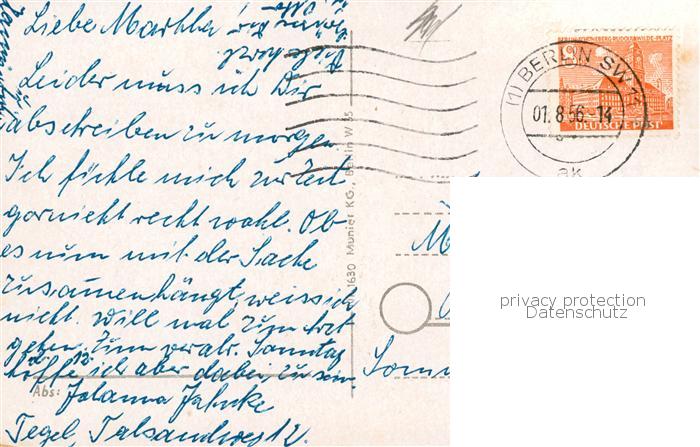 Liebe Martha
Leider muss ich Dir
abschreiben zu morgen.
Ich fühle mich zur Zeit
garnicht recht wohl. Ob
es nun mit der Sache
zusammenhängt, weiss ich
nicht. Will mal zum Arzt
gehen. Zum verabr. Sonntag
12. hoffe ich aber dabei zu sein.
Abs: Johanna Jahnke
Tegel, Talsandweg 12.
1630 Munier KG., Berlin W 35
BERLIN-SCHÖNEBERG·RUDOLF-WILDE-PLATZ
DEUTSCHE POST
(1) BERLIN SW
01.8.56.-14
ak
M
privacy protection
Datenschutz